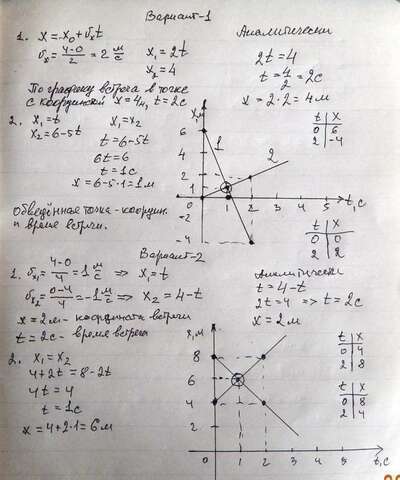 Вариант-1
1. x = x₀ + υₓt
υₓ = (4-0)/2 = 2 м/с
x₁ = 2t
x₂ = 4
Аналитически
2t = 4
t = 4/2 = 2с
x = 2·2 = 4м
По графику встреча в точке
с координатой x = 4м, t = 2с
2. x₁ = t
x₂ = 6-5t
x₁ = x₂
t = 6-5t
6t = 6
t = 1с
x = 6-5·1 = 1м
Обведённая точка - координ.
и время встречи.
x, м
6
4
2
1
0
-2
-4
1
2
1 2 3 4 5 t, с
t x
0 6
2 -4
t x
0 0
2 2
Вариант-2
1. υₓ₁ = (4-0)/4 = 1 м/с => x₁ = t
υₓ₂ = (0-4)/4 = -1 м/с => x₂ = 4-t
x = 2м - координата встречи
t = 2с - время встречи
Аналитически
t = 4-t
2t = 4 => t = 2с
x = 2м
2. x₁ = x₂
4+2t = 8-2t
4t = 4
t = 1с
x = 4+2·1 = 6м
x, м
8
6
4
2
0 1 2 3 4 5 t, с
t x
0 4
2 8
t x
0 8
2 4